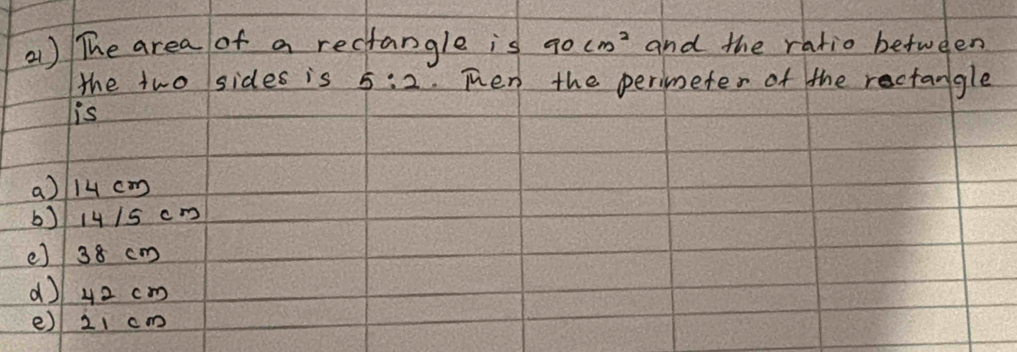 21) The area of a rectangle is 90 cm² and the ratio between
the two sides is 5:2. Then the perimeter of the rectangle
is
a) 14 cm
b) 14/5 cm
e) 38 cm
d) 42 cm
e) 21 cm